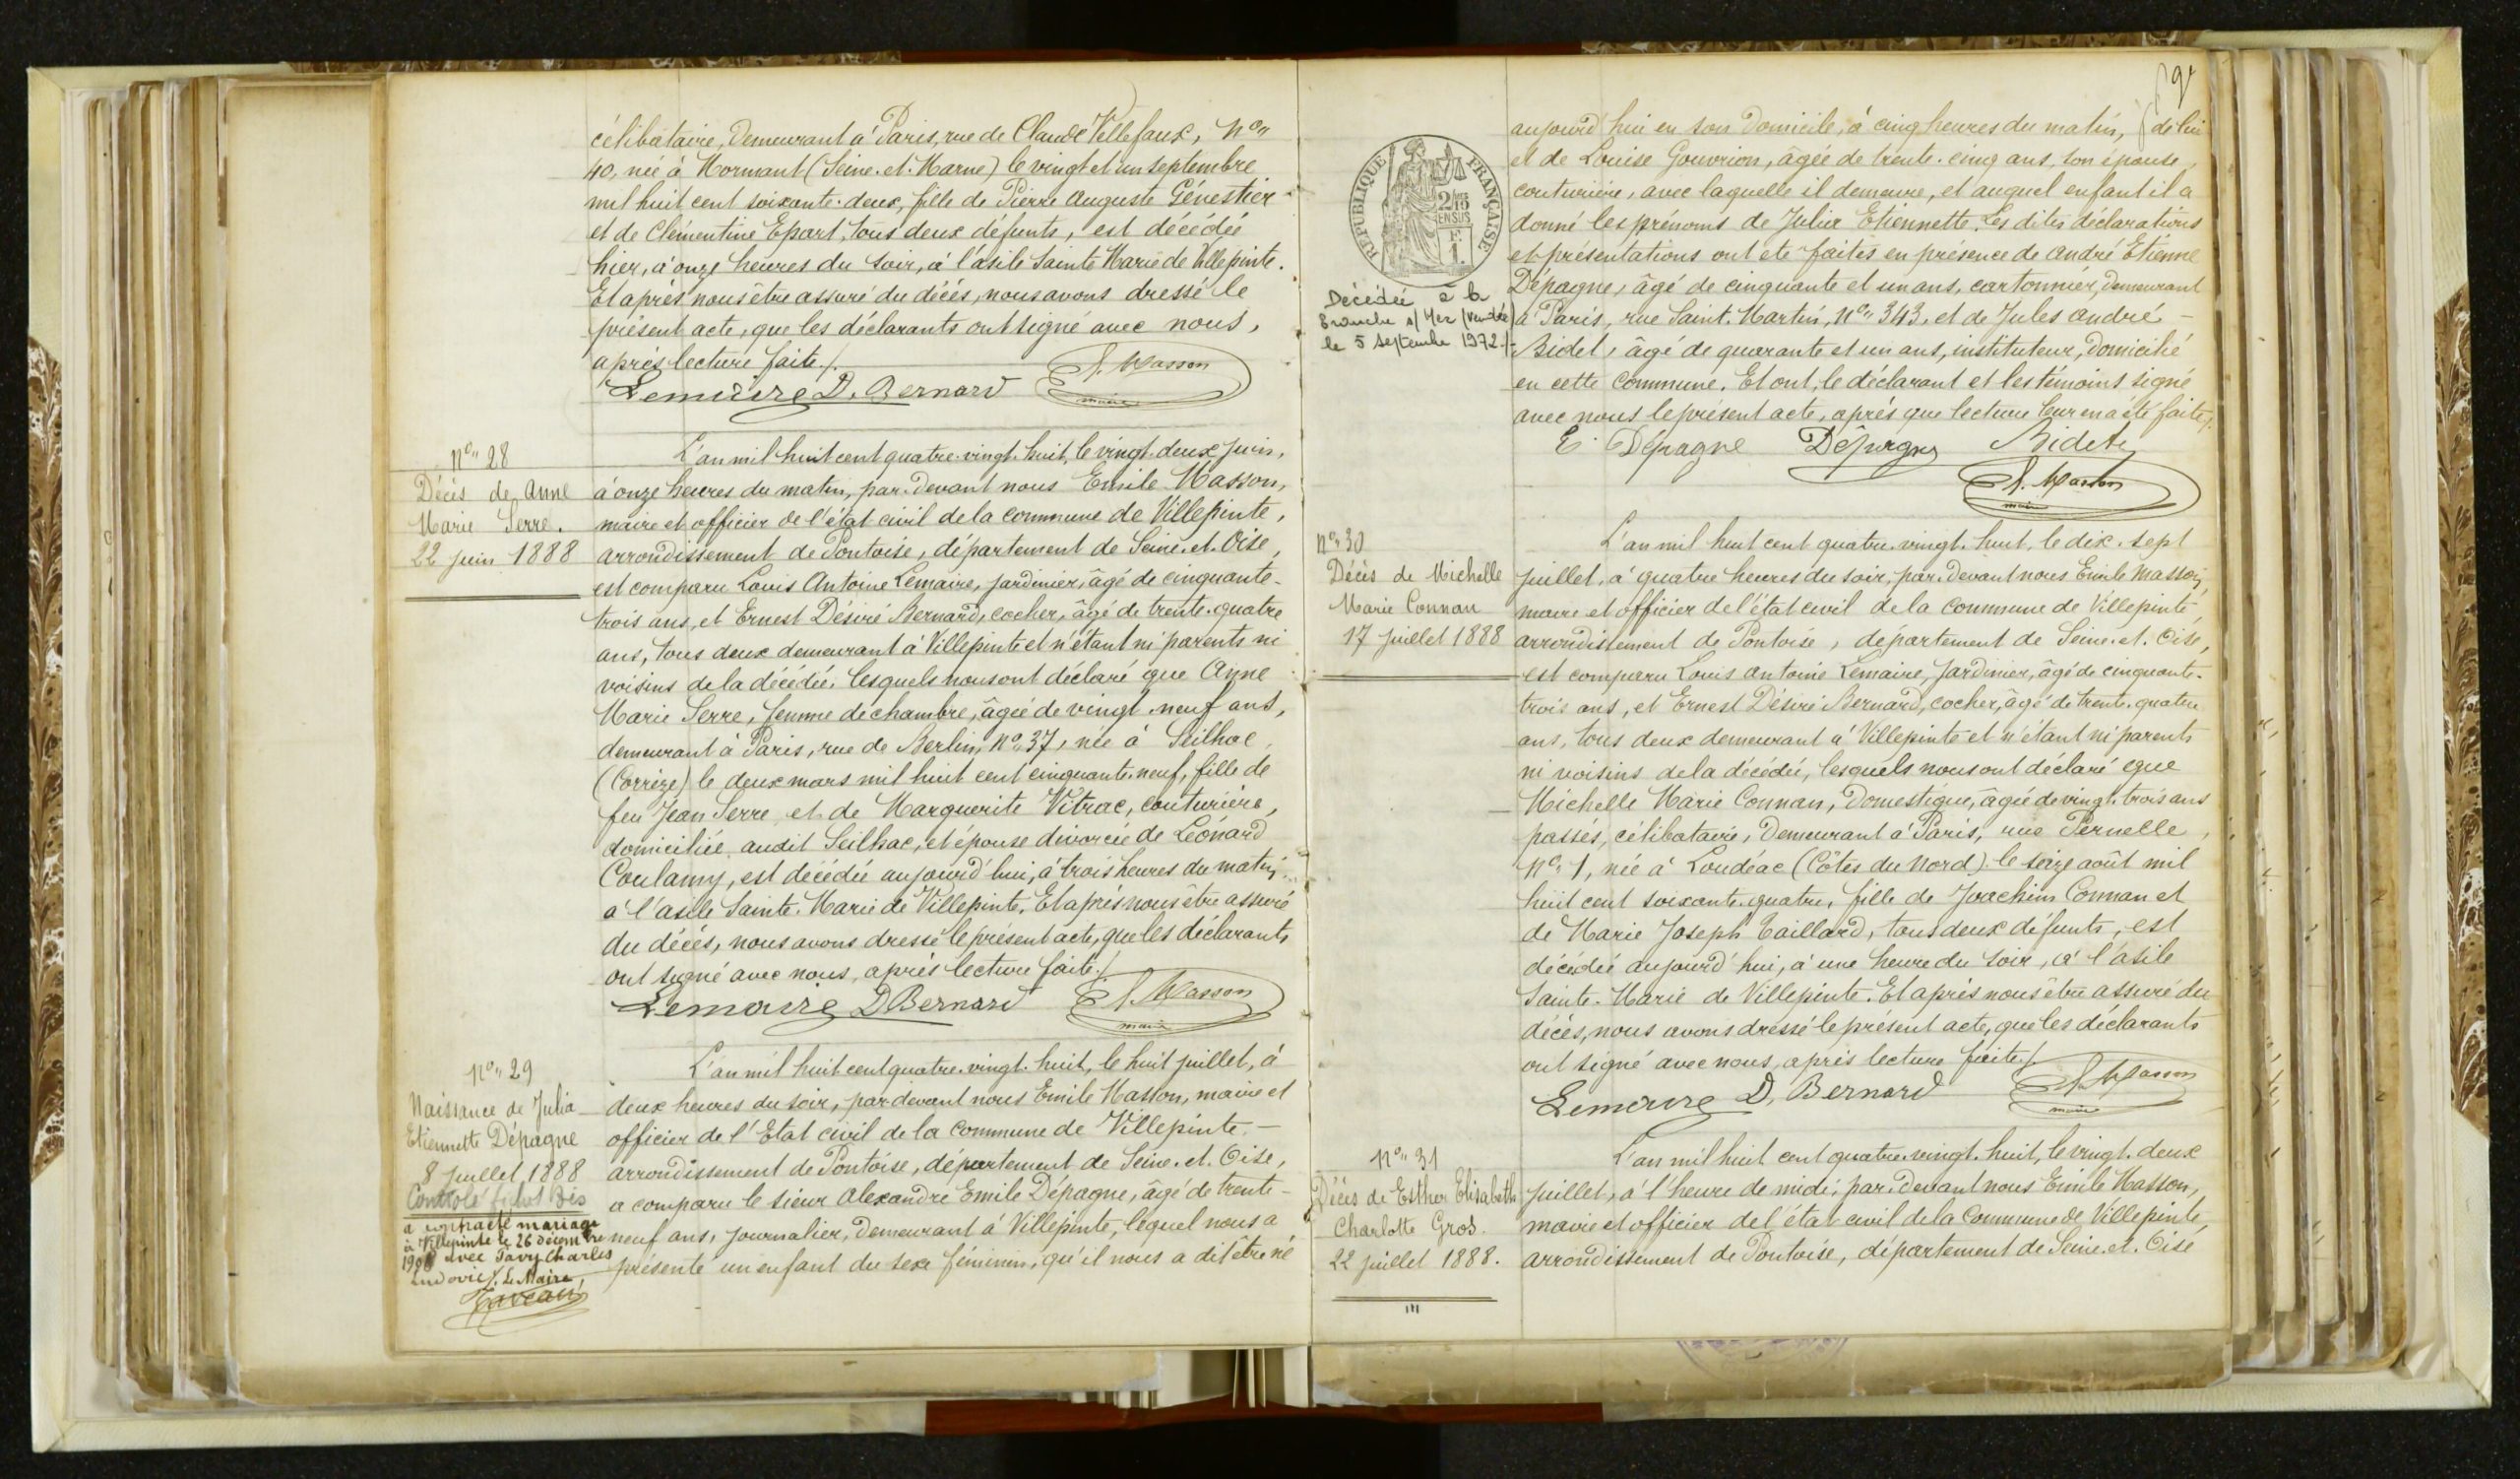 célibataire, demeurant à Paris, rue de Claude Vellefaux, No"
40, née à Mormant (Seine-et-Marne) le vingt et un septembre
mil huit cent soixante-deux, fille de Pierre Auguste Génestier
et de Clémentine Epart, tous deux défunts, est décédée
hier, à onze heures du soir, à l'asile Sainte Marie de Villepinte.
Et après nous être assuré du décès, nous avons dressé le
présent acte, que les déclarants ont signé avec nous,
après lecture faite./.
Lemaire D. Bernard E. Masson
maire
No" 28
Décès de Anne
Marie Serre.
22 juin 1888
L'an mil huit cent quatre-vingt-huit, le vingt-deux juin,
à onze heures du matin, par-devant nous Emile Masson,
maire et officier de l'état civil de la commune de Villepinte,
arrondissement de Pontoise, département de Seine-et-Oise,
est comparu Louis Antoine Lemaire, jardinier, âgé de cinquante-
trois ans, et Ernest Désiré Bernard, cocher, âgé de trente-quatre
ans, tous deux demeurant à Villepinte et n'étant ni parents ni
voisins de la décédée, lesquels nous ont déclaré que Anne
Marie Serre, femme de chambre, âgée de vingt-neuf ans,
demeurant à Paris, rue de Berlin, No" 37, née à Seilhac,
(Corrèze) le deux mars mil huit cent cinquante-neuf, fille de
feu Jean Serre et de Marguerite Vitrac, couturière,
domiciliée audit Seilhac, et épouse divorcée de Léonard
Coulamy, est décédée aujourd'hui, à trois heures du matin,
à l'asile Sainte-Marie de Villepinte. Et après nous être assuré
du décès, nous avons dressé le présent acte, que les déclarants
ont signé avec nous, après lecture faite./.
Lemaire D Bernard E. Masson
maire
No" 29
Naissance de Julia
Etiennette Dépagne
8 Juillet 1888
Contrôlé
a contracté mariage
à Villepinte le 26 décembre
1908 avec Pavy Charles
Ludovic /. Le Maire,
L'an mil huit cent quatre-vingt-huit, le huit juillet, à
deux heures du soir, par devant nous Emile Masson, maire et
officier de l'Etat civil de la commune de Villepinte -
arrondissement de Pontoise, département de Seine-et-Oise,
a comparu le sieur Alexandre Emile Dépagne, âgé de trente-
neuf ans, journalier, demeurant à Villepinte, lequel nous a
présenté un enfant du sexe féminin, qu'il nous a dit être né
aujourd'hui en son domicile, à cinq heures du matin, de lui
et de Louise Gouvrion, âgée de trente-cinq ans, son épouse,
couturière, avec laquelle il demeure, et auquel enfant il a
donné les prénoms de Julia Etiennette. Les dites déclarations
et présentations ont été faites en présence de André Etienne
Dépagne, âgé de cinquante et un ans, cartonnier, demeurant
à Paris, rue Saint-Martin, No" 343, et de Jules André -
Bidet, âgé de quarante et un ans, instituteur, domicilié
en cette commune. Et ont, le déclarant et les témoins signé
avec nous le présent acte, après que lecture leur en a été faite./.
E. Dépagne Dépagne Bidet
E. Masson
maire
RÉPUBLIQUE FRANÇAISE
2/10
EN SUS
1 F.
Décédée à la
s/ Mer (Vendée)
le 5 septembre 1972./-
No" 30
Décès de Michelle
Marie Connan
17 juillet 1888
L'an mil huit cent quatre-vingt-huit, le dix-sept
juillet, à quatre heures du soir, par-devant nous Emile Masson,
maire et officier de l'état civil de la commune de Villepinte,
arrondissement de Pontoise, département de Seine-et-Oise,
est comparu Louis Antoine Lemaire, jardinier, âgé de cinquante-
trois ans, et Ernest Désiré Bernard, cocher, âgé de trente-quatre
ans, tous deux demeurant à Villepinte et n'étant ni parents
ni voisins de la décédée, lesquels nous ont déclaré que
Michelle Marie Connan, domestique, âgée de vingt-trois ans
passés, célibataire, demeurant à Paris, rue Pernelle,
No" 1, née à Loudéac (Côtes du Nord) le seize août mil
huit cent soixante-quatre, fille de Joachim Connan et
de Marie Joseph Taillard, tous deux défunts, est
décédée aujourd'hui, à une heure du soir, à l'asile
Sainte-Marie de Villepinte. Et après nous être assuré du
décès, nous avons dressé le présent acte, que les déclarants
ont signé avec nous, après lecture faite./.
Lemaire D, Bernard E. Masson
maire
No" 31
Décès de Esther Elisabeth
Charlotte Gros.
22 juillet 1888.
L'an mil huit cent quatre-vingt-huit, le vingt-deux
juillet, à l'heure de midi, par-devant nous Emile Masson,
maire et officier de l'état civil de la commune de Villepinte,
arrondissement de Pontoise, département de Seine-et-Oise